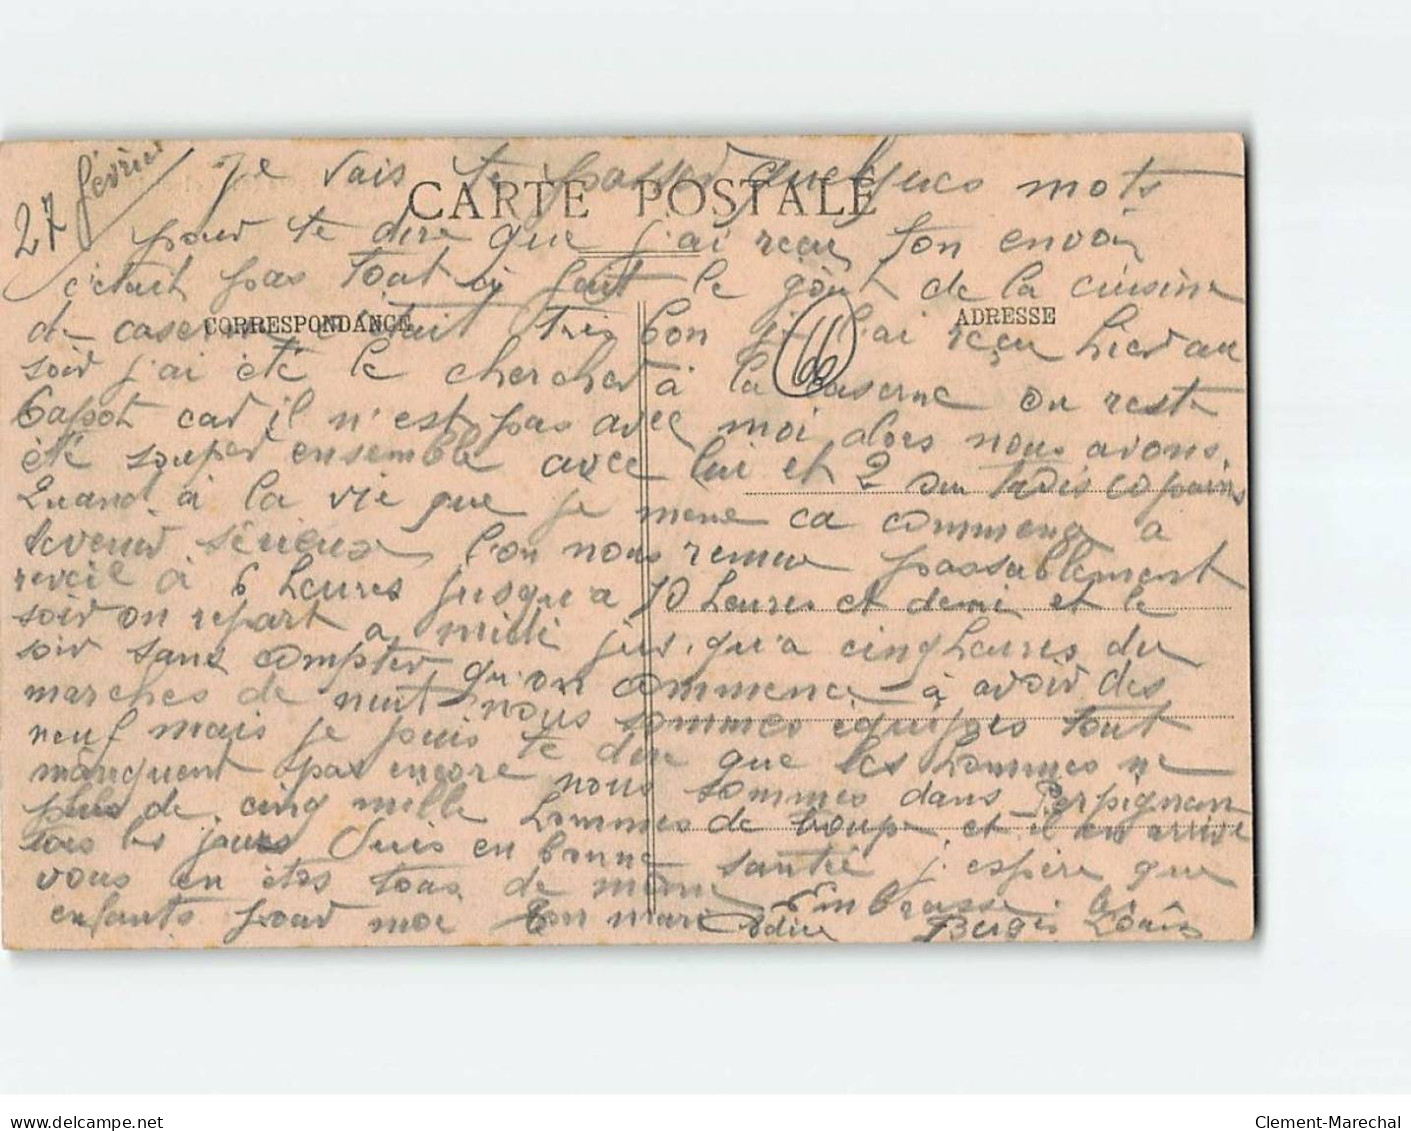 27 février
Je vais te passer quelques mots
CARTE POSTALE
pour te dire que j'ai reçu ton envoi
c'etait pas tout à fait le goût de la cuisine
de caserne c'etait très bon je l'ai reçu hier au
CORRESPONDANCE
ADRESSE
66
soir j'ai été le chercher à la caserne ou reste
Capot car il n'est pas avec moi alors nous avons
été souper ensemble avec lui et 2 ou trois copains
Quand à la vie que je mene ca commence a
devenir sérieux, l'on nous remue passablement
reveil à 6 heures jusqu'a 10 heures et demi et le
soir on repart a midi jusqu'a cinq heures du
soir sans compter qu'on commence à avoir des
marches de nuit nous sommes équipes tout
neuf mais je puis te dire que les hommes ne
manquent pas encore nous sommes dans Perpignan
plus de cinq mille hommes de troupe et il en arrive
tous les jours Suis en bonne santé j'espère que
vous en êtes tous de même Embrasse les
enfants pour moi ton mari Bergès Louis